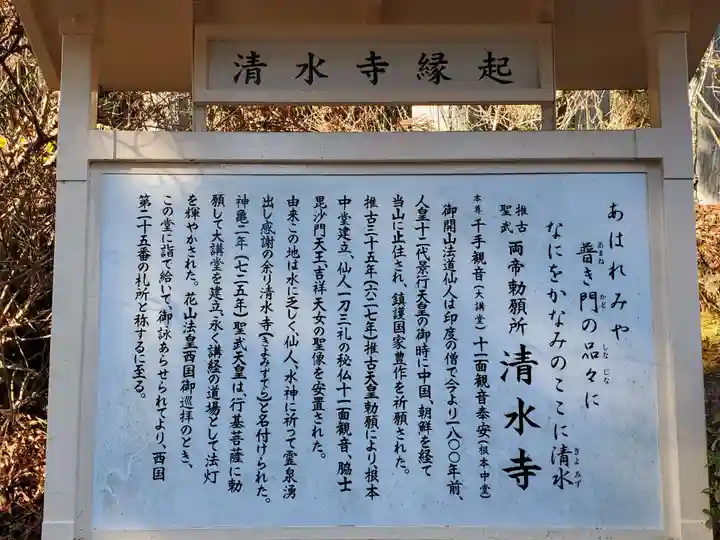 清水寺縁起
あはれみや
普き門の品々に
あまね
かど
しな じな
なにをかなみのここに清水
きよ みず
推古
聖武
両帝勅願所 清水寺
本尊 千手観音(大講堂)十一面観音泰安(根本中堂)
御開山法道仙人は印度の僧で今より一八〇〇年前、
人皇十二代景行天皇の御時に中国、朝鮮を経て
当山に止住され、鎮護国家豊作を祈願された。
推古三十五年(六二七年)推古天皇勅願により、根本
中堂建立、仙人一刀三札の秘仏十一面観音、脇士
毘沙門天王、吉祥天女の聖像を安置された。
由来この地は水に乏しく、仙人、水神に祈って霊泉湧
出し感謝の余り清水寺(きよみずでら)と名付けられた。
神亀二年(七二五年)聖武天皇は、行基菩薩に勅
願して大講堂を建立、永く講経の道場として法灯
を輝やかされた。花山法皇西国御巡拝のとき、
この堂に詣で給いて、御詠あらせられてより、西国
第二十五番の札所と称するに至る。